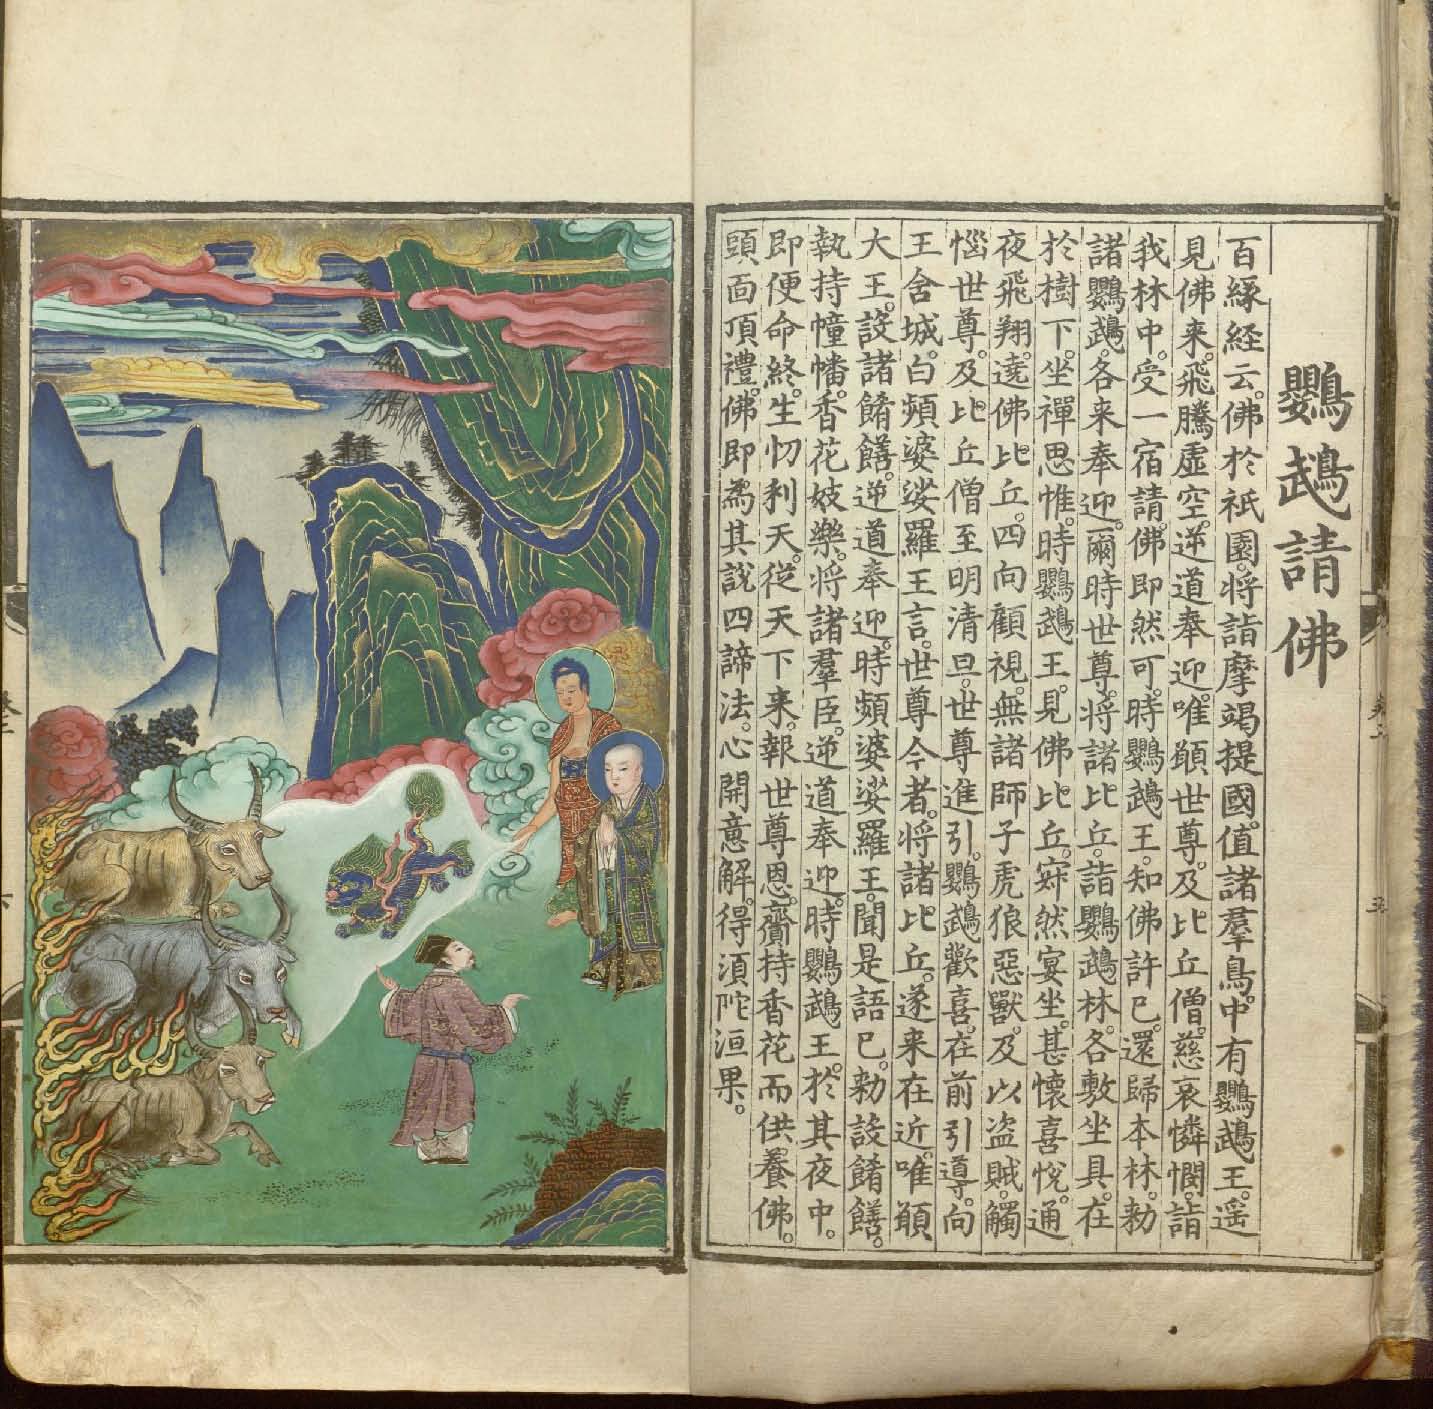 鸚鵡請佛
百緣経云。佛於祇園。將詣摩竭提國。值諸羣鳥。中有鸚鵡王。遥
見佛来。飛騰虛空。逆道奉迎。唯願世尊。及比丘僧。慈哀憐憫。詣
我林中。受一宿請。佛即然可。時鸚鵡王。知佛許已。還歸本林。勑
諸鸚鵡。各来奉迎。爾時世尊。將諸比丘。詣鸚鵡林。各敷坐具。在
於樹下。坐禪思惟。時鸚鵡王。見佛比丘。寂然宴坐。甚懷喜悅。通
夜飛翔。遶佛比丘。四向顧視。無諸師子虎狼惡獸。及以盜賊。觸
惱世尊。及比丘僧。至明清旦。世尊進引。鸚鵡歡喜。在前引導。向
王舍城。白頻婆娑羅王言。世尊今者。將諸比丘。遂来在近。唯願
大王。設諸餚饍。逆道奉迎。時頻婆娑羅王。聞是語已。勑設餚饍。
執持幢幡。香花妓樂。將諸羣臣。逆道奉迎。時鸚鵡王。於其夜中。
即便命終。生忉利天。從天下来。報世尊恩。齎持香花而供養佛。
頭面頂禮。佛即為其說四諦法。心開意解。得須陀洹果。